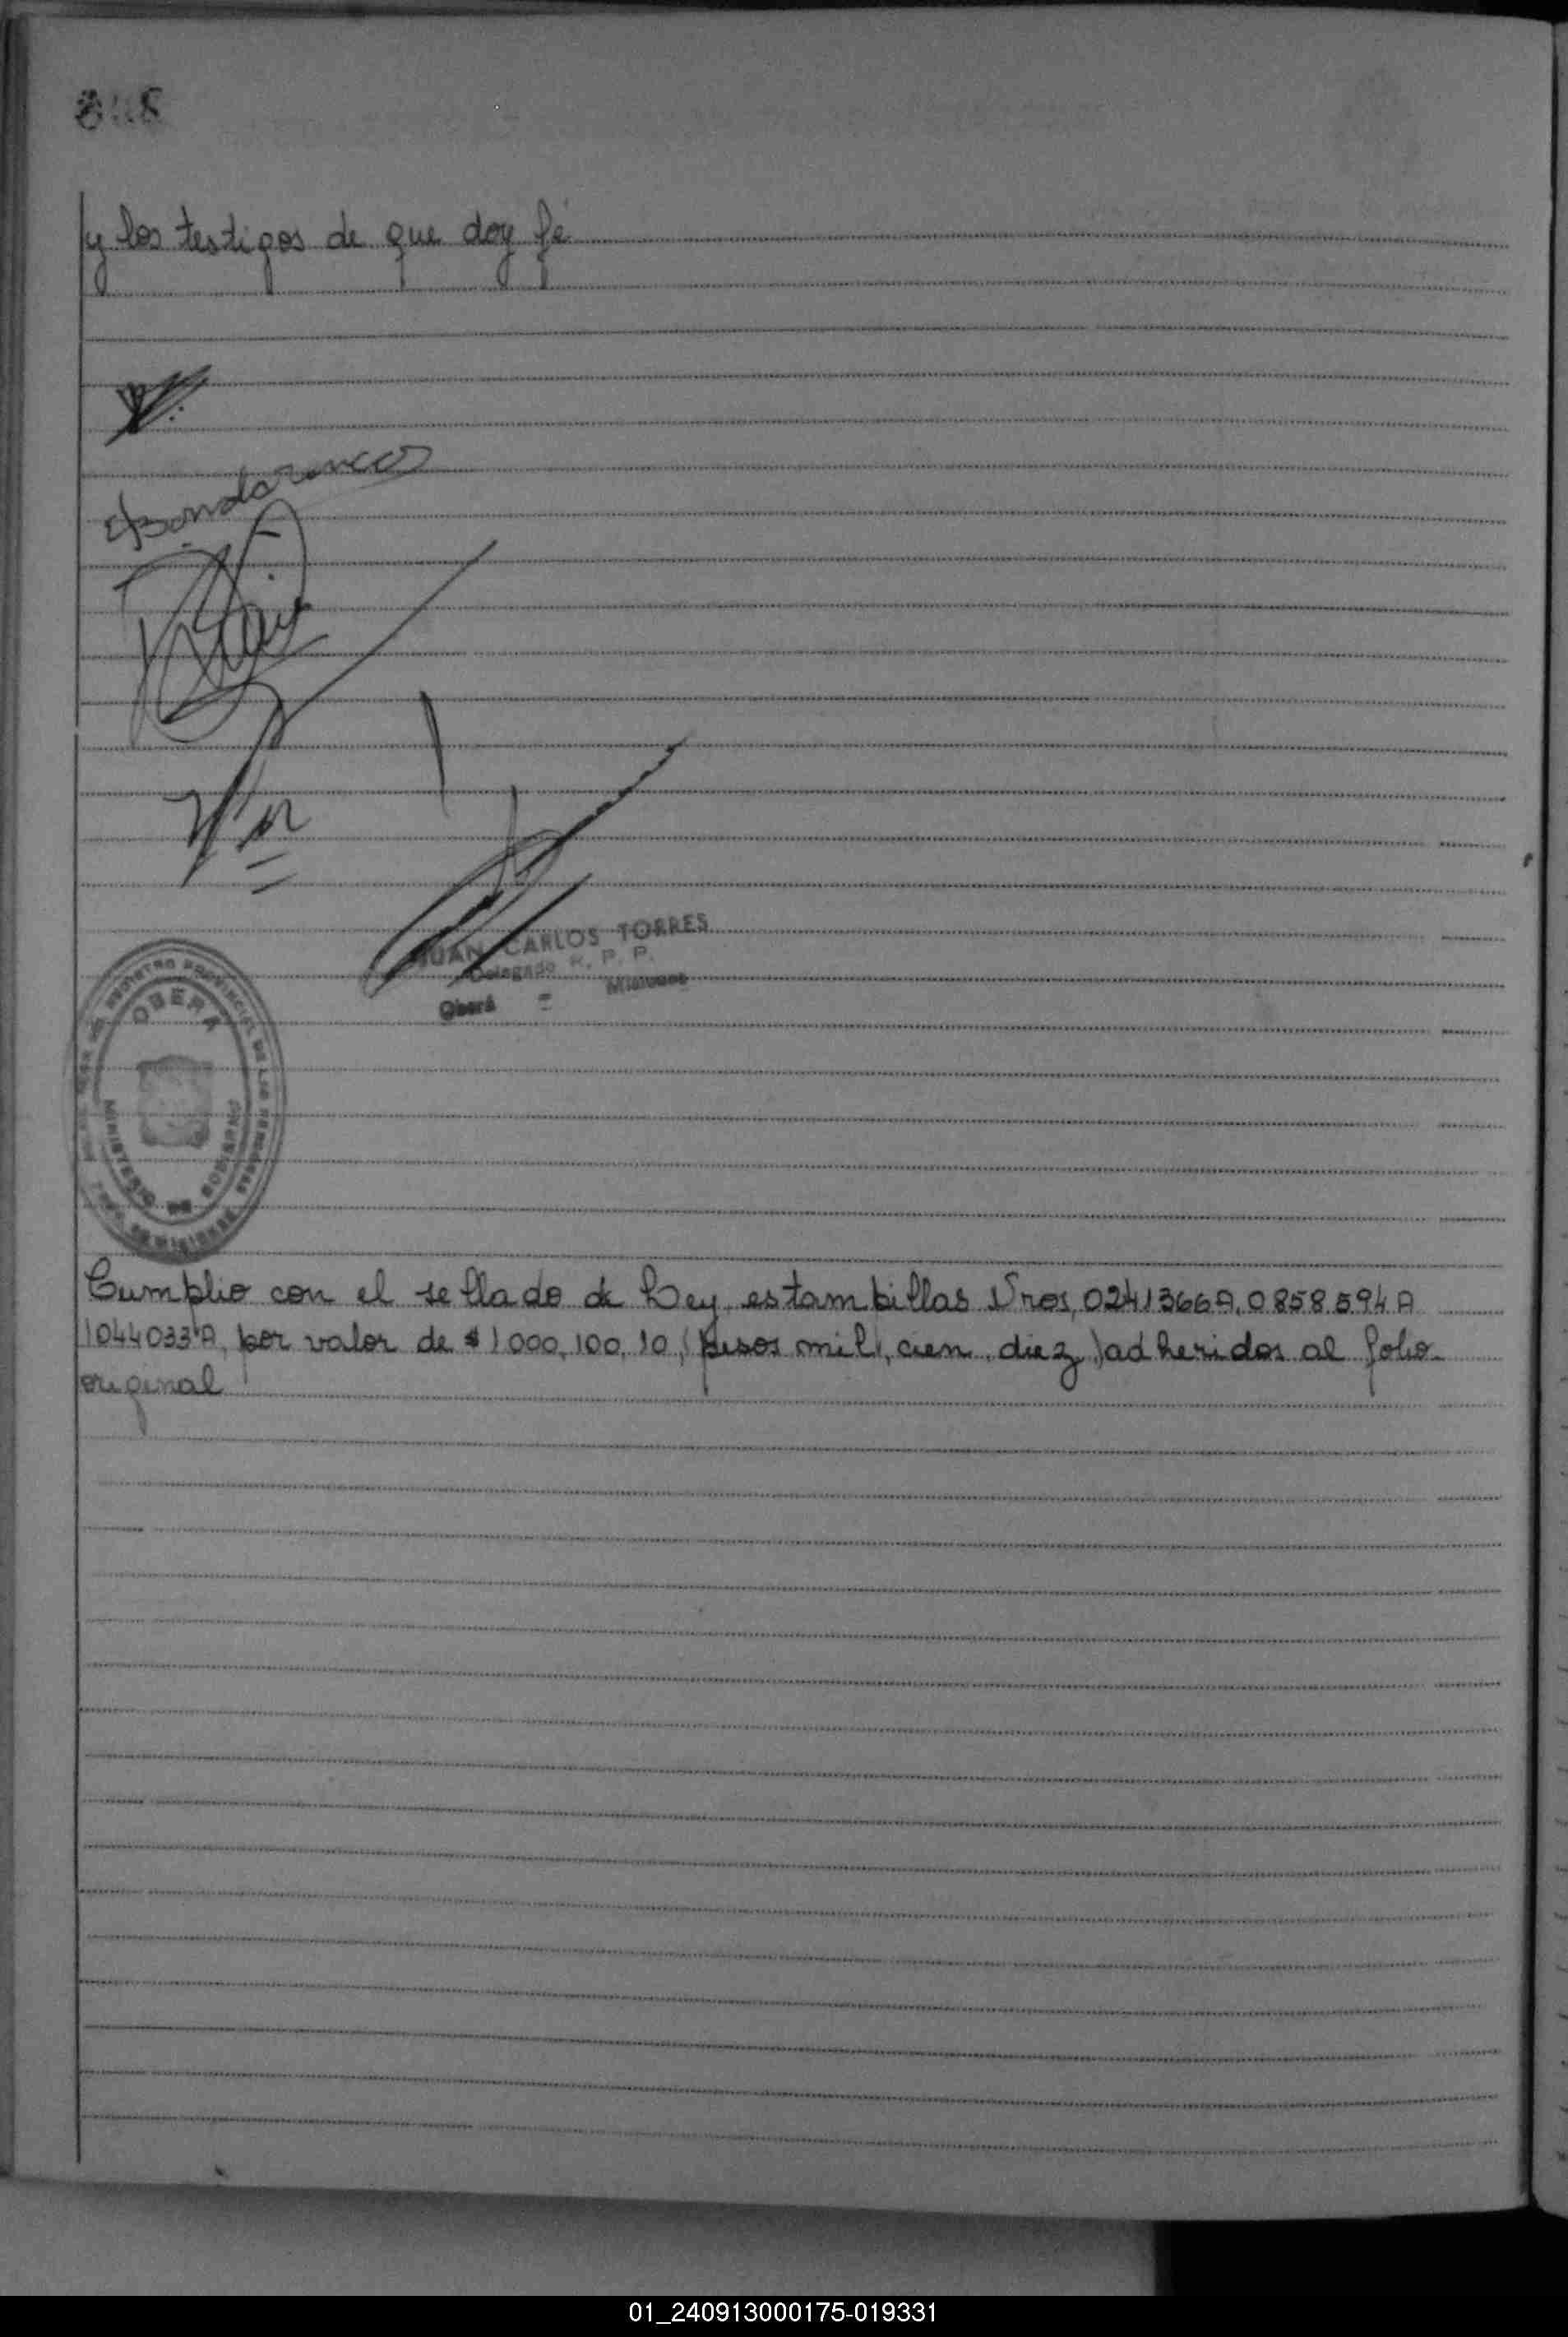 y los testigos de que doy fé
JUAN CARLOS TORRES
Delegado R. P. P.
Oberá - Misiones
OBERA
MINISTERIO DE GOBIERNO
REGISTRO PROVINCIAL DE LAS PERSONAS
Cumplio con el sellado de Ley, estampillas Nros, 0241366A, 0858594A
1044033A, por valor de $1000, 100, 10, (pesos mil, cien, diez) adheridos al folio
original
01_240913000175-019331